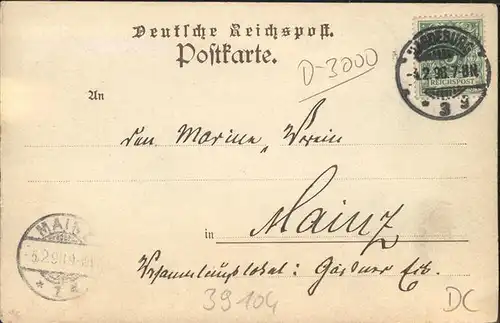 Deutsche Reichspost.
Postkarte.
D-3000
MAGDEBURG
2.98.7-8N.
* 3 g
REICHSPOST
An
den Marine-Verein
in Mainz
MAINZ
* 1 *
Versammlungslokal:
39104
DC